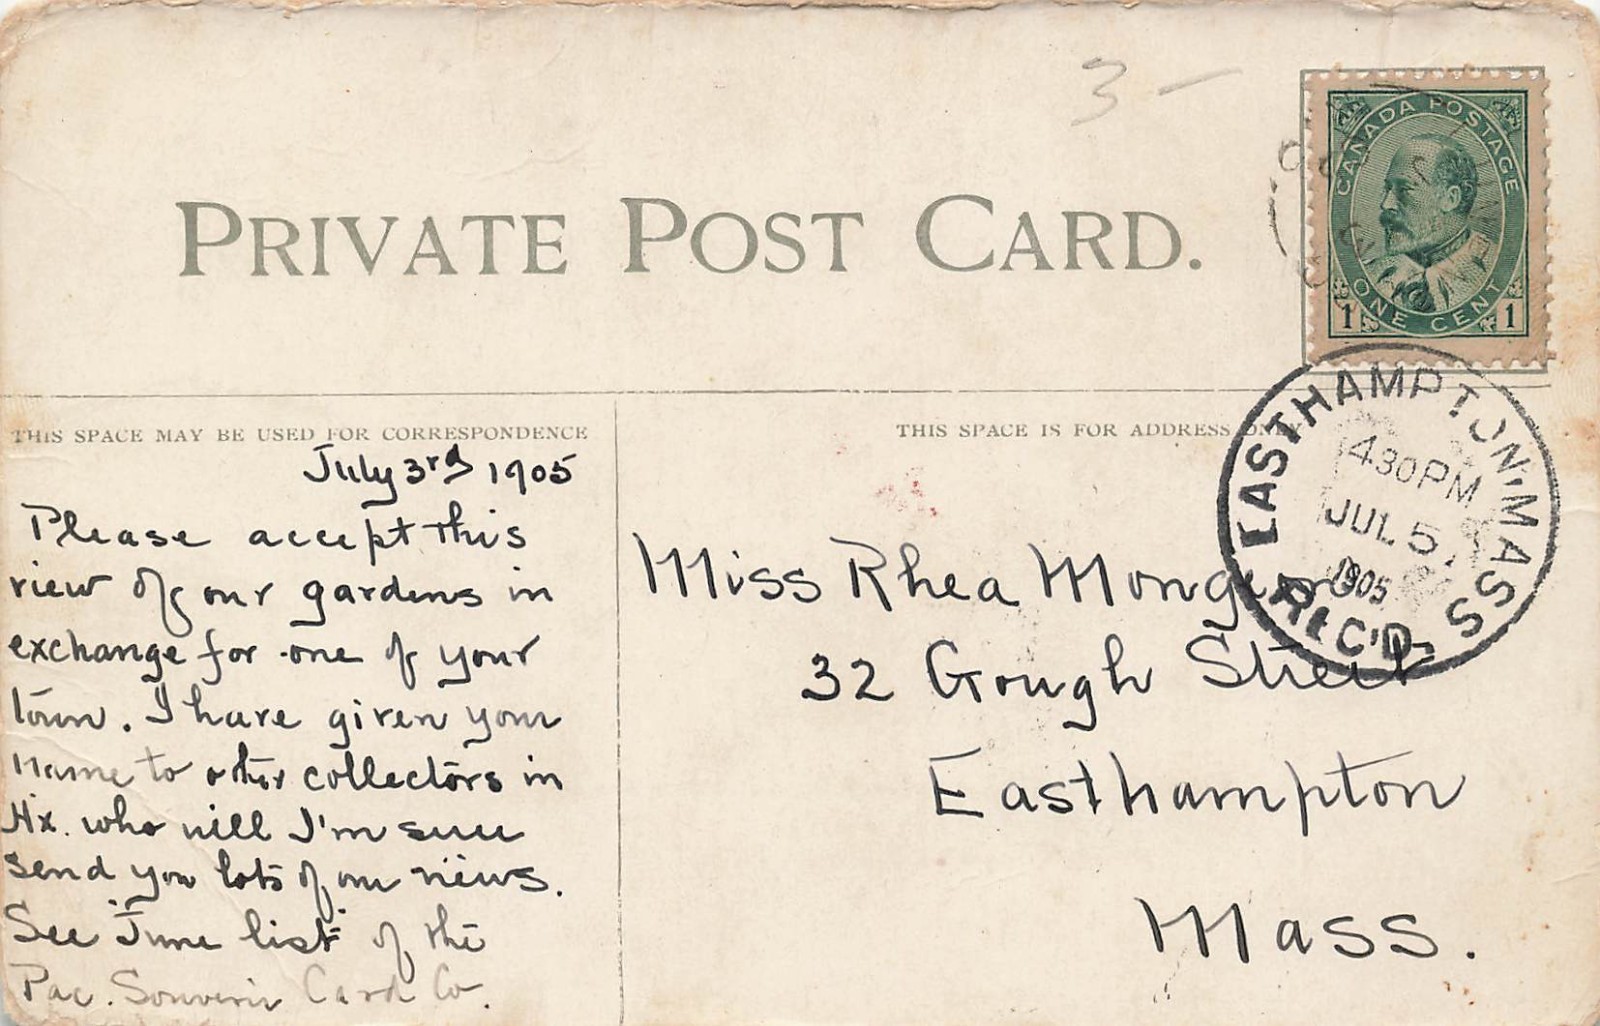 3 –
PRIVATE POST CARD.
CANADA POSTAGE
ONE CENT
1 1
THIS SPACE MAY BE USED FOR CORRESPONDENCE
July 3rd 1905
Please accept this
view of our gardens in
exchange for one of your
town. I have given your
name to other collectors in
Hx. who will I'm sure
send you lots of our views.
See "June list" of the
Pac. Souvenir Card Co.
THIS SPACE IS FOR ADDRESS ONLY
EASTHAMPTON·MASS
430PM
JUL 5
1905
REC'D
Miss Rhea
32 Gough Street
Easthampton
Mass.